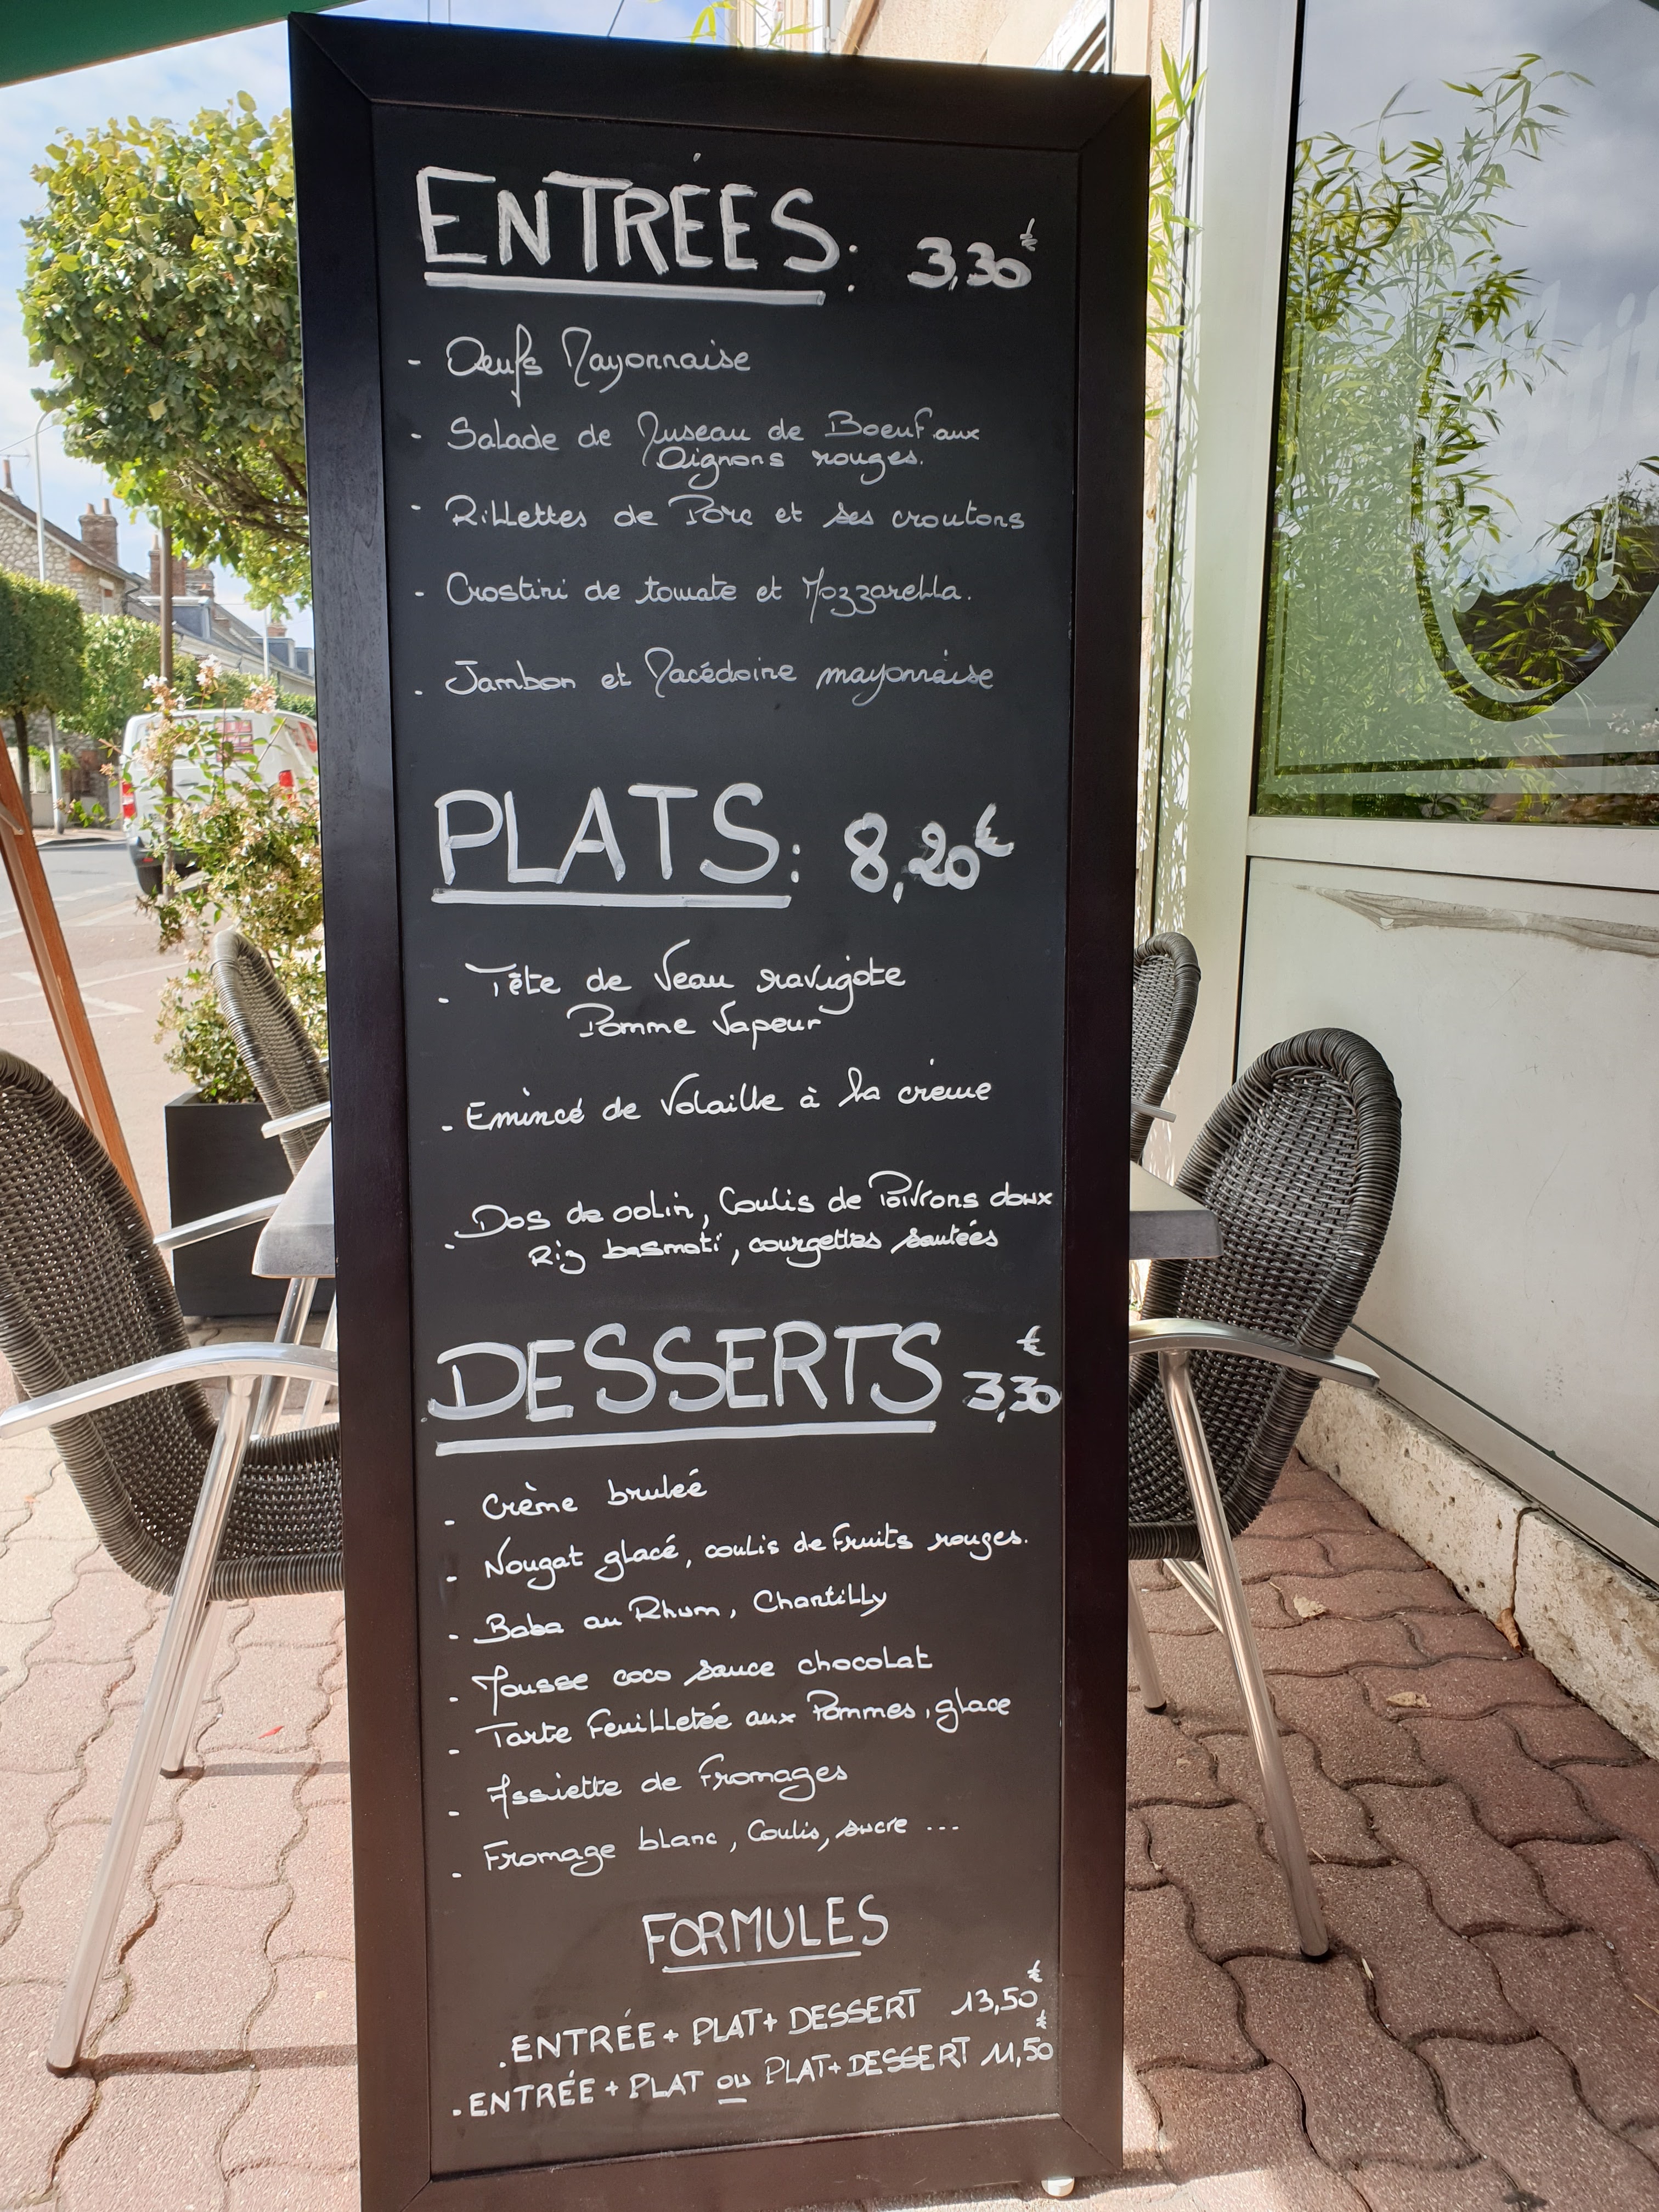 ENTRÉES: 3,30€
- Oeufs Mayonnaise
- Salade de Museau de Boeuf aux
Oignons rouges.
- Rillettes de Porc et ses croutons
- Crostini de tomate et Mozzarella.
- Jambon et Macédoine mayonnaise
PLATS: 8,20€
- Tête de Veau ravigote
Pomme Vapeur
- Emincé de Volaille à la crème
- Dos de colin, Coulis de Poivrons doux
Riz basmati, courgettes sautées
DESSERTS 3,30€
- Crème bruleé
- Nougat glacé, coulis de Fruits rouges.
- Baba au Rhum, Chantilly
- Mousse coco sauce chocolat
- Tarte Feuilletée aux Pommes, glace
- Assiette de Fromages
- Fromage blanc, Coulis, sucre ...
FORMULES
. ENTRÉE + PLAT + DESSERT 13,50€
. ENTRÉE + PLAT ou PLAT + DESSERT 11,50€